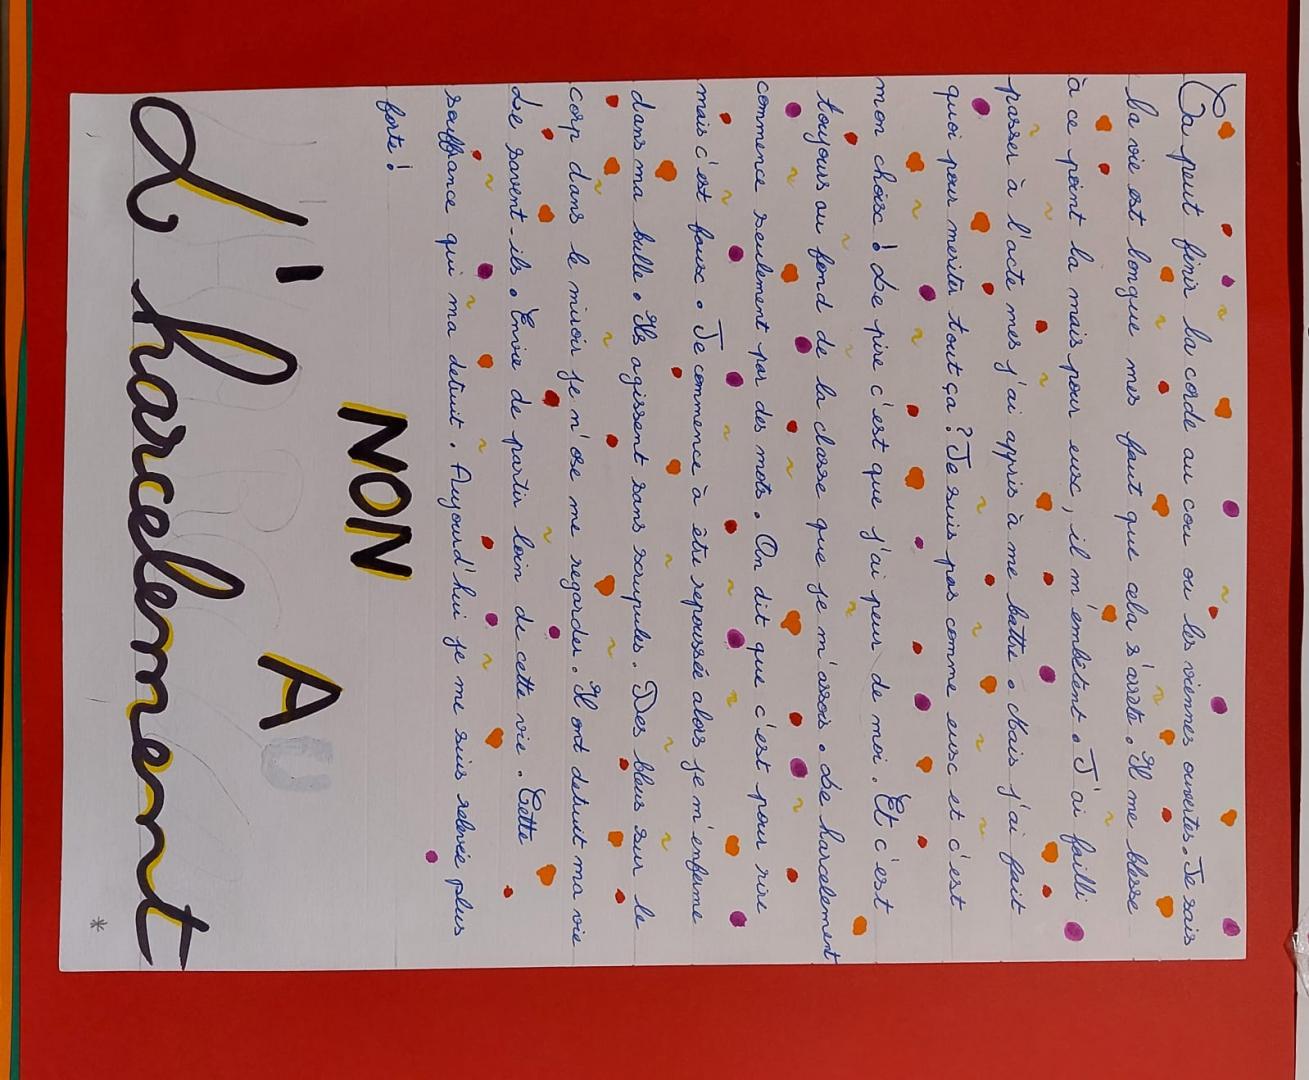 Ça peut finir la corde au cou ou les viennes ouvertes. Je sais
la vie est longue mes faut que cela s'arrête. Il me blesse
à ce point la mais pour eux, il m'embêtent. J'ai failli
passer à l'acte mes j'ai appris à me battre. Mais j'ai fait
quoi pour meriter tout ça? Je suis pas comme eux et c'est
mon choix! Le pire c'est que j'ai peur de moi. Et c'est
toujours au fond de la classe que je m'assois. Le harcelement
commence seulement par des mots. On dit que c'est pour rire
mais c'est faux. Je commence à être repoussée alors je m'enferme
dans ma bulle. Ils agissent sans scrupules. Des bleus sur le
corp dans le miroir je n'ose me regarder. Il ont detruit ma vie
Le savent-ils. Envie de partir loin de cette vie. Cette
souffrance qui ma detruit. Aujourd'hui je me suis relevée plus
forte!
NON
A
L'harcelement